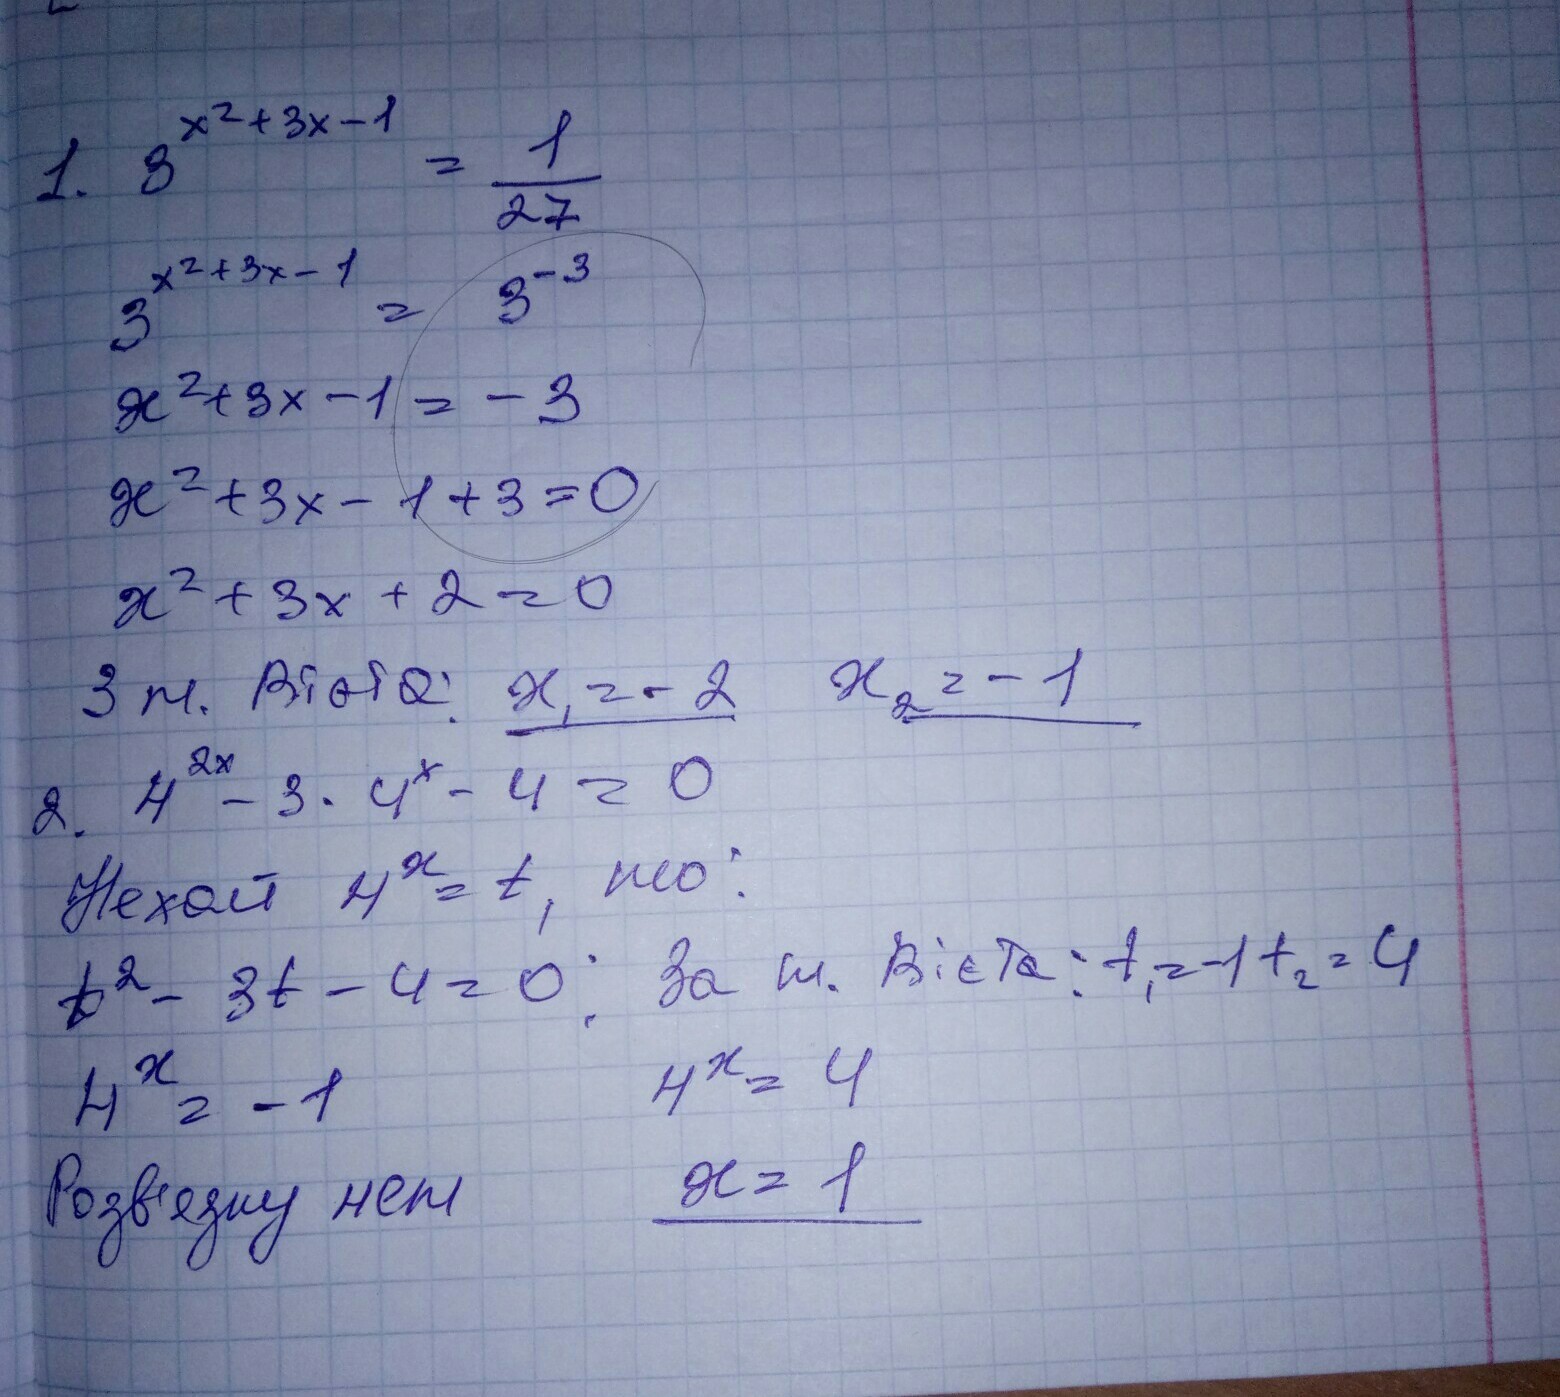 1. 3^{x²+3x-1} = 1/27
3^{x²+3x-1} = 3^{-3}
x²+3x-1 = -3
x²+3x-1+3=0
x²+3x+2=0
З т. Вієта: x₁=-2 x₂=-1
2. 4^{2x} - 3·4^x - 4 = 0
Нехай 4^x = t, то:
t² - 3t - 4 = 0; За т. Вієта: t₁=-1 t₂=4
4^x = -1 4^x = 4
Розв'язку нет x = 1